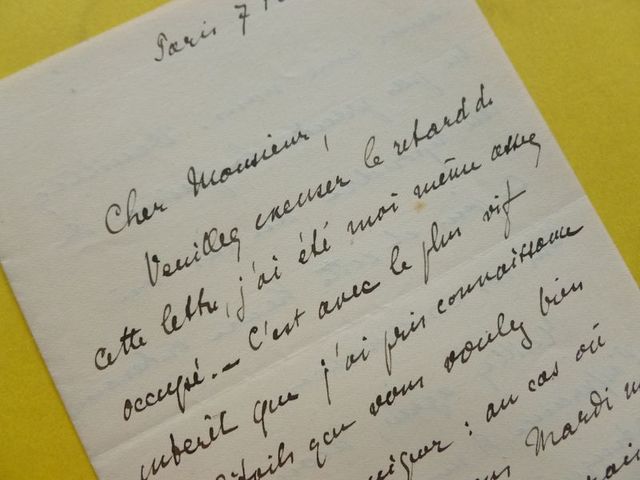 Paris 7
Cher Monsieur,
Veuillez excuser le retard de
cette lettre, j'ai été moi même assez
occupé. — C'est avec le plus vif
intérêt que j'ai pris connaissance
détails que vous voulez bien
: au cas où
Mardi